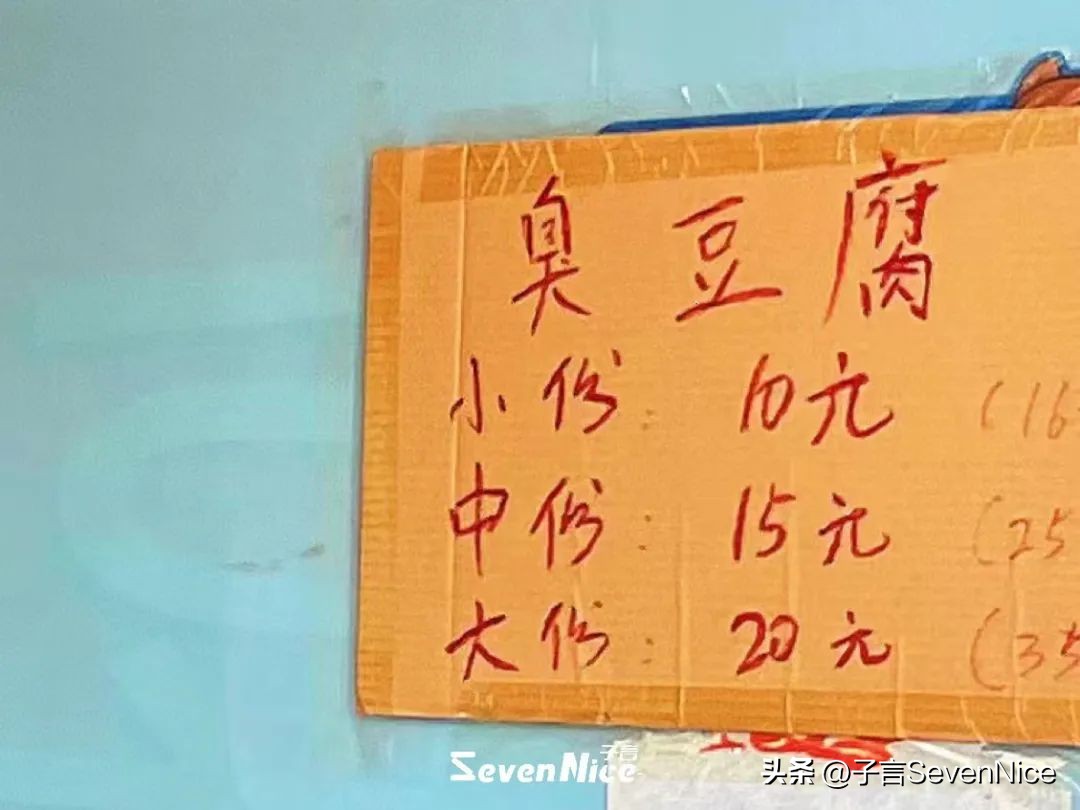 臭豆腐
小份: 10元 (16
中份: 15元 (25
大份: 20元 (35
子言
SevenNice
头条 @子言SevenNice